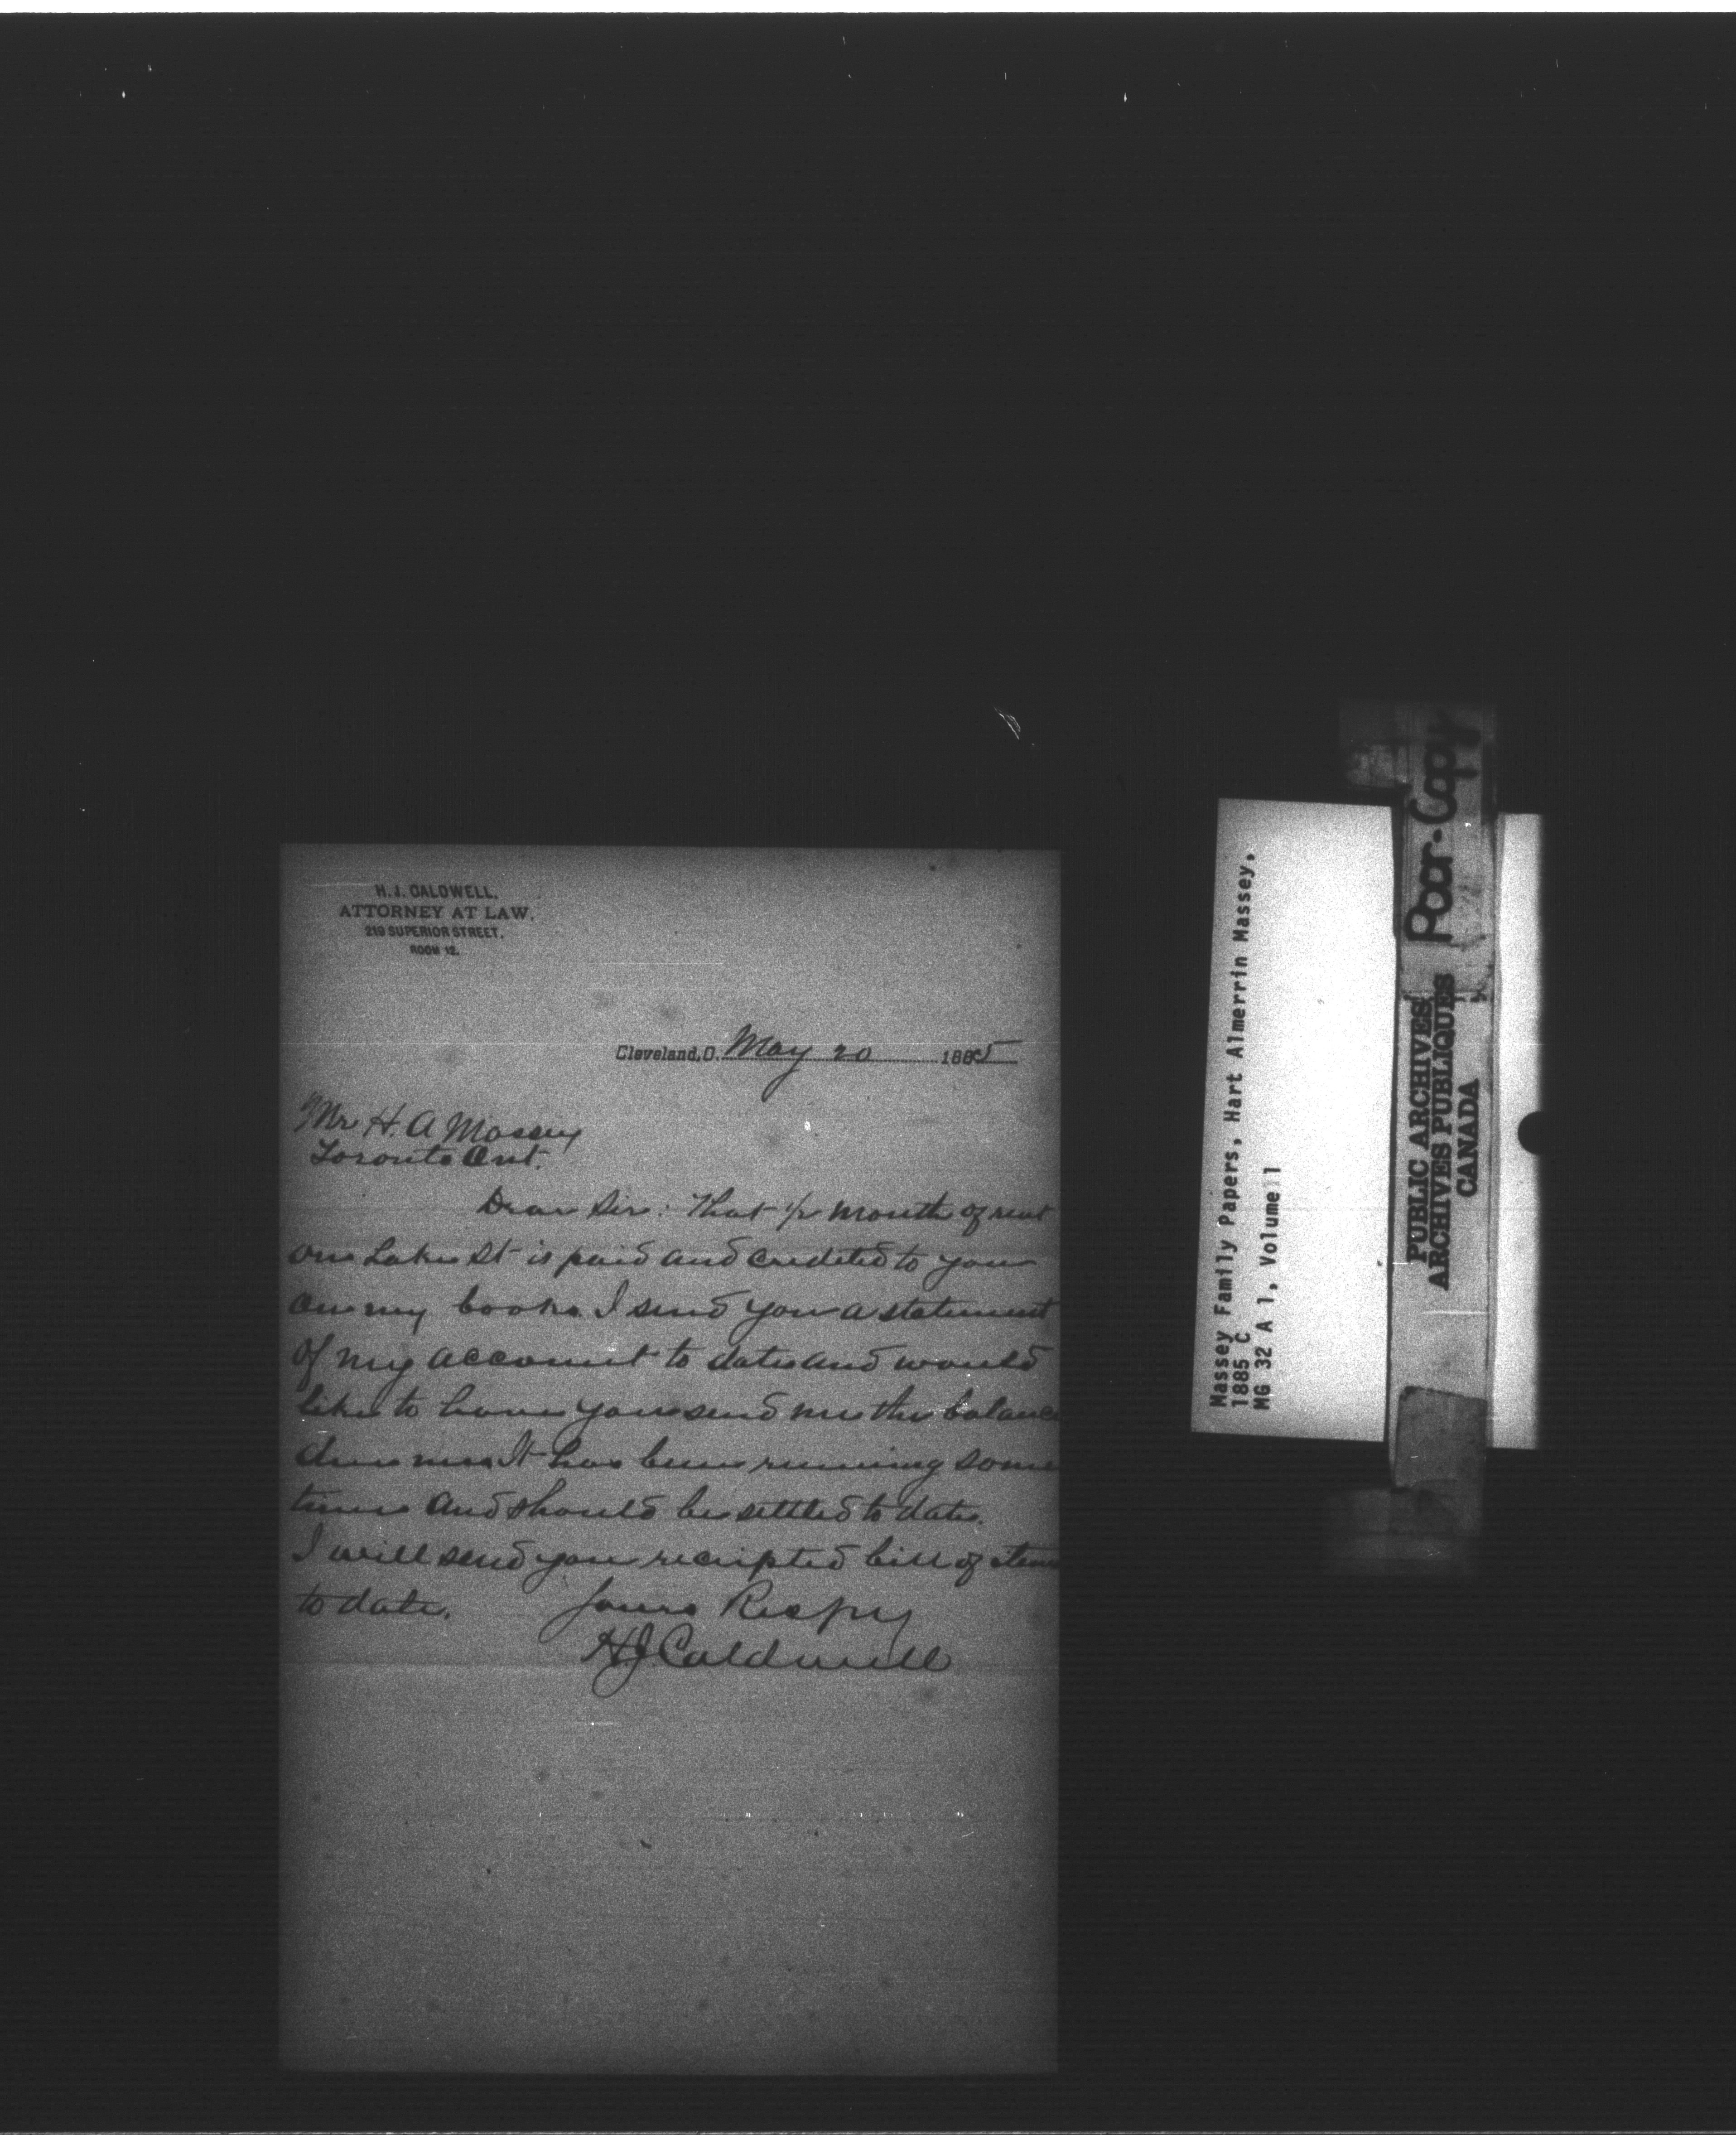 H. J. CALDWELL,
ATTORNEY AT LAW,
219 SUPERIOR STREET,
ROOM 12.
Cleveland, O. May 20 1885
Mr H. A Massey
Toronto Ont.
Dear Sir: That 1/2 month of rent
on Lake St is paid and credited to you
on my books. I send you a statement
of my account to date and would
like to have you send me the balance
due me. It has been running some
time and should be settled to date.
I will send you receipted bill of items
to date. Yours Respy
HJ Caldwell
Massey Family Papers, Hart Almerrin Massey,
1885 C
MG 32 A 1, Volume 1
Poor-Copy
PUBLIC ARCHIVES
ARCHIVES PUBLIQUES
CANADA